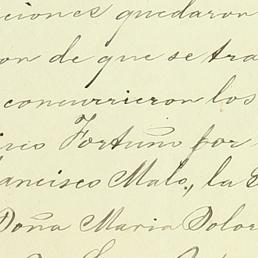 ciones quedaron
on de que se tra
concurrieron los
Fortuño por
ancisco Malo, la
Doña Maria Dolor